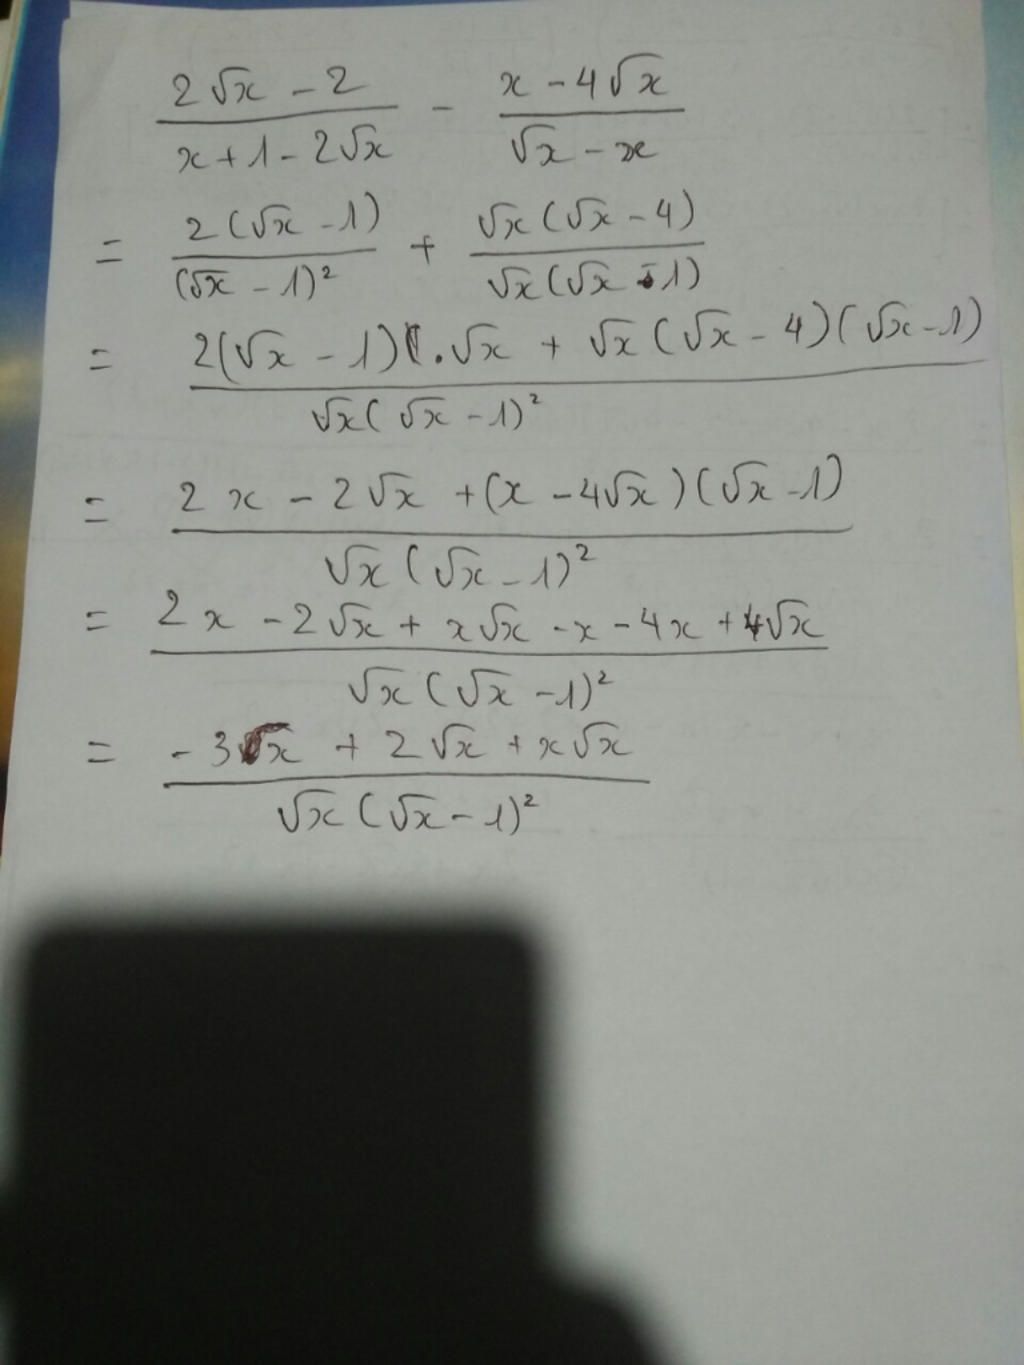 (2√x - 2)/(x + 1 - 2√x) - (x - 4√x)/(√x - x)
= (2(√x - 1))/((√x - 1)²) + (√x(√x - 4))/(√x(√x - 1))
= (2(√x - 1).√x + √x(√x - 4)(√x - 1))/(√x(√x - 1)²)
= (2x - 2√x + (x - 4√x)(√x - 1))/(√x(√x - 1)²)
= (2x - 2√x + x√x - x - 4x + 4√x)/(√x(√x - 1)²)
= (-3x + 2√x + x√x)/(√x(√x - 1)²)